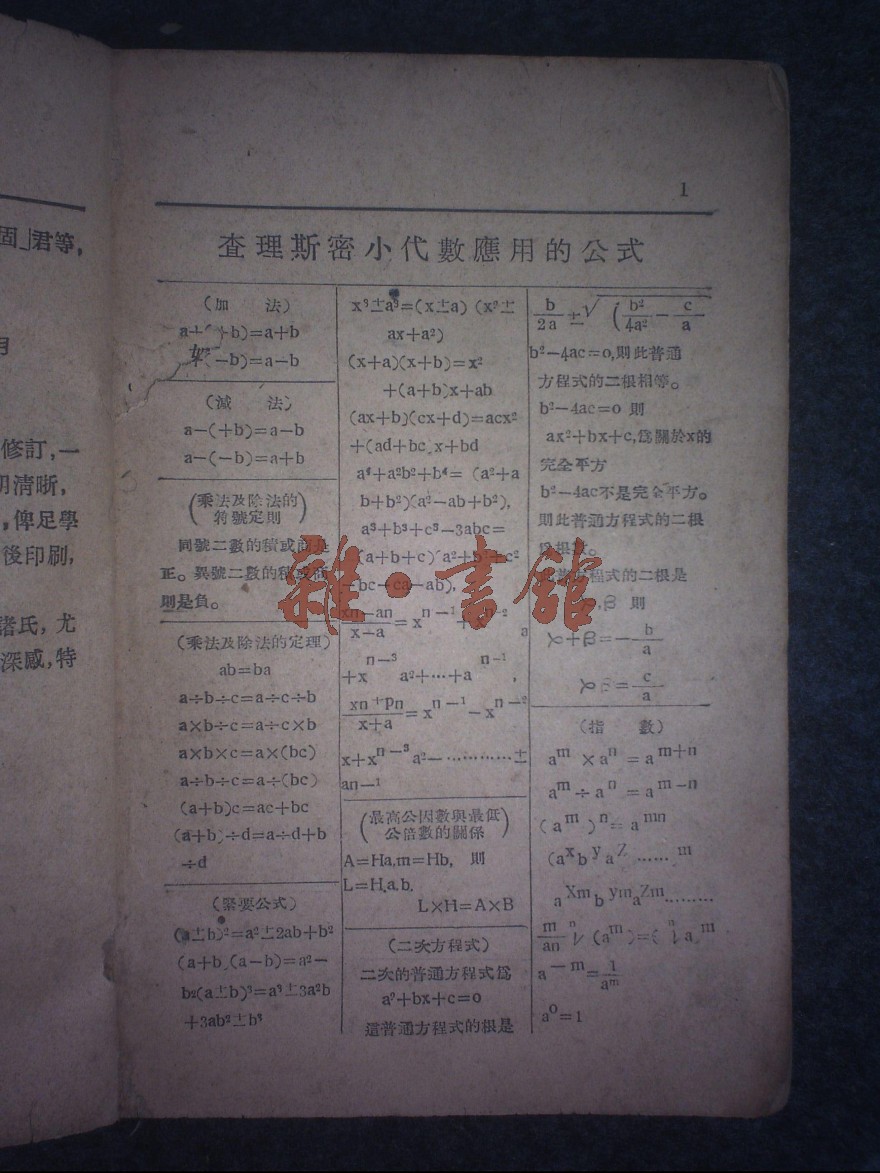 固」君等,
月
修訂,一
明清晰,
,俾足學
後印刷,
諸氏,尤
深感,特
1
查理斯密小代數應用的公式
(加 法)
+b)=a+b
-b)=a-b
(減 法)
a-(+b)=a-b
a-(-b)=a+b
(乘法及除法的
符號定則)
同號二數的積或商是
正。異號二數的積或商
則是負。
(乘法及除法的定理)
ab=ba
a÷b÷c=a÷c÷b
a×b÷c=a÷c×b
a×b×c=a×(bc)
a÷b÷c=a÷(bc)
(a+b)c=ac+bc
(a+b)÷d=a÷d+b
÷d
(緊要公式)
(a±b)²=a²±2ab+b²
(a+b)(a-b)=a²-
b²(a±b)³=a³±3a²b
+3ab²±b³
x³±a³=(x±a) (x²±
ax+a²)
(x+a)(x+b)=x²
+(a+b)x+ab
(ax+b)(cx+d)=acx²
+(ad+bc)x+bd
a⁴+a²b²+b⁴= (a²+a
b+b²)(a²-ab+b²),
a³+b³+c³-3abc=
(a+b+c)(a²+b²+c²
-bc-ca-ab),
xn-an/x-a=xⁿ⁻¹+
a
+xⁿ⁻³a²+···+aⁿ⁻¹,
xn+pn/x+a=xⁿ⁻¹-xⁿ⁻²
x+xⁿ⁻³a²-············±
an-1
(最高公因數與最低
公倍數的關係)
A=Ha.m=Hb, 則
L=H.a.b.
L×H=A×B
(二次方程式)
二次的普通方程式爲
a²+bx+c=o
這普通方程式的根是
b/2a ±√(b²/4a²-c/a
b²-4ac=o,則此普通
方程式的二根相等。
b²-4ac=o 則
ax²+bx+c,爲關於x的
完全平方
b²-4ac不是完全平方。
則此普通方程式的二根
根
方程式的二根是
則
=-b/a
=c/a
(指 數)
aᵐ×aⁿ=aᵐ⁺ⁿ
aᵐ÷aⁿ=aᵐ⁻ⁿ
(aᵐ)ⁿ=aᵐⁿ
(aˣbʸaᶻ······ᵐ
aˣᵐbʸᵐaᶻᵐ·········
m/an ⁿ√(aᵐ)=(ⁿ√a)ᵐ
a⁻ᵐ=1/aᵐ
a⁰=1
雜·書館